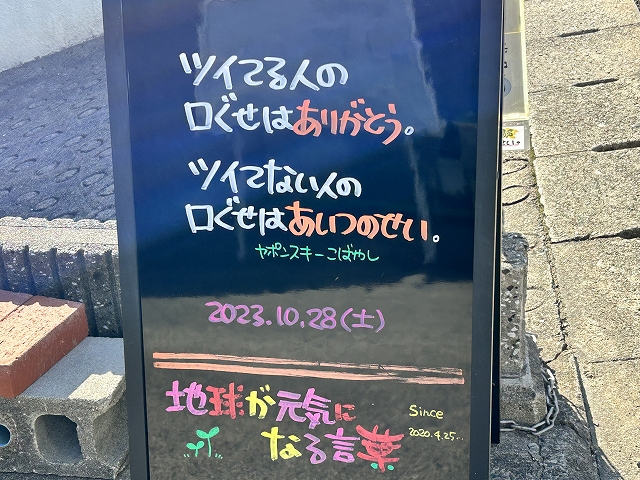 ツイてる人の
口ぐせはありがとう。
ツイてない人の
口ぐせはあいつのせい。
ヤポンスキーこばやし
2023.10.28(土)
地球が元気に
なる言葉
Since
2020.4.25..